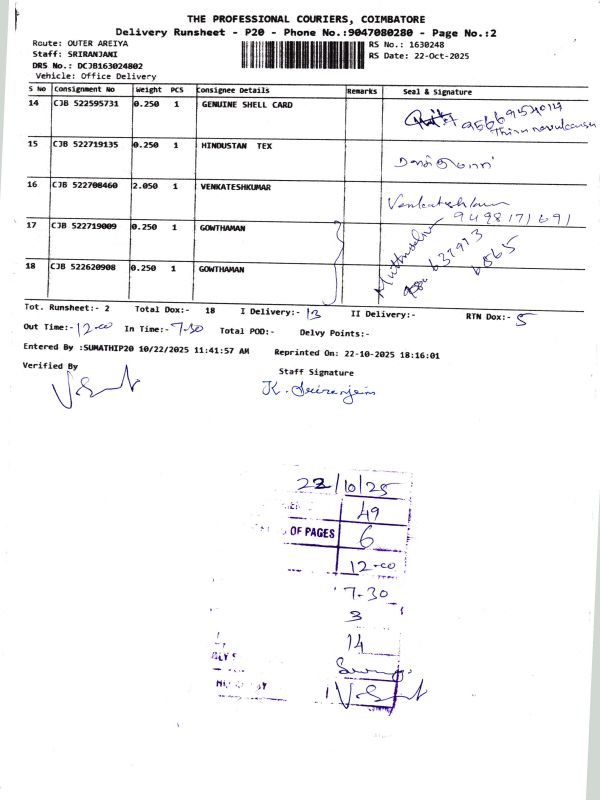 THE PROFESSIONAL COURIERS, COIMBATORE
Delivery Runsheet - P20 - Phone No.:9047080280 - Page No.:2
Route: OUTER AREIYA
RS No.: 1630248
Staff: SRIRANJANI
RS Date: 22-Oct-2025
DRS No.: DCJB163024802
Vehicle: Office Delivery
S No Consignment No Weight PCS Consignee Details Remarks Seal & Signature
14 CJB 522595731 0.250 1 GENUINE SHELL CARD
15 CJB 522719135 0.250 1 HINDUSTAN TEX
16 CJB 522708460 2.050 1 VENKATESHKUMAR Venkateshkumar
9498171691
17 CJB 522719009 0.250 1 GOWTHAMAN
18 CJB 522620908 0.250 1 GOWTHAMAN
Tot. Runsheet:- 2 Total Dox:- 18 I Delivery:- 13 II Delivery:- RTN Dox:- 5
Out Time:- 12-00 In Time:- 7-30 Total POD:- Delvy Points:-
Entered By :SUMATHIP20 10/22/2025 11:41:57 AM Reprinted On: 22-10-2025 18:16:01
Verified By
Staff Signature
22/10/25
49
OF PAGES 6
12-00
7-30
3
14